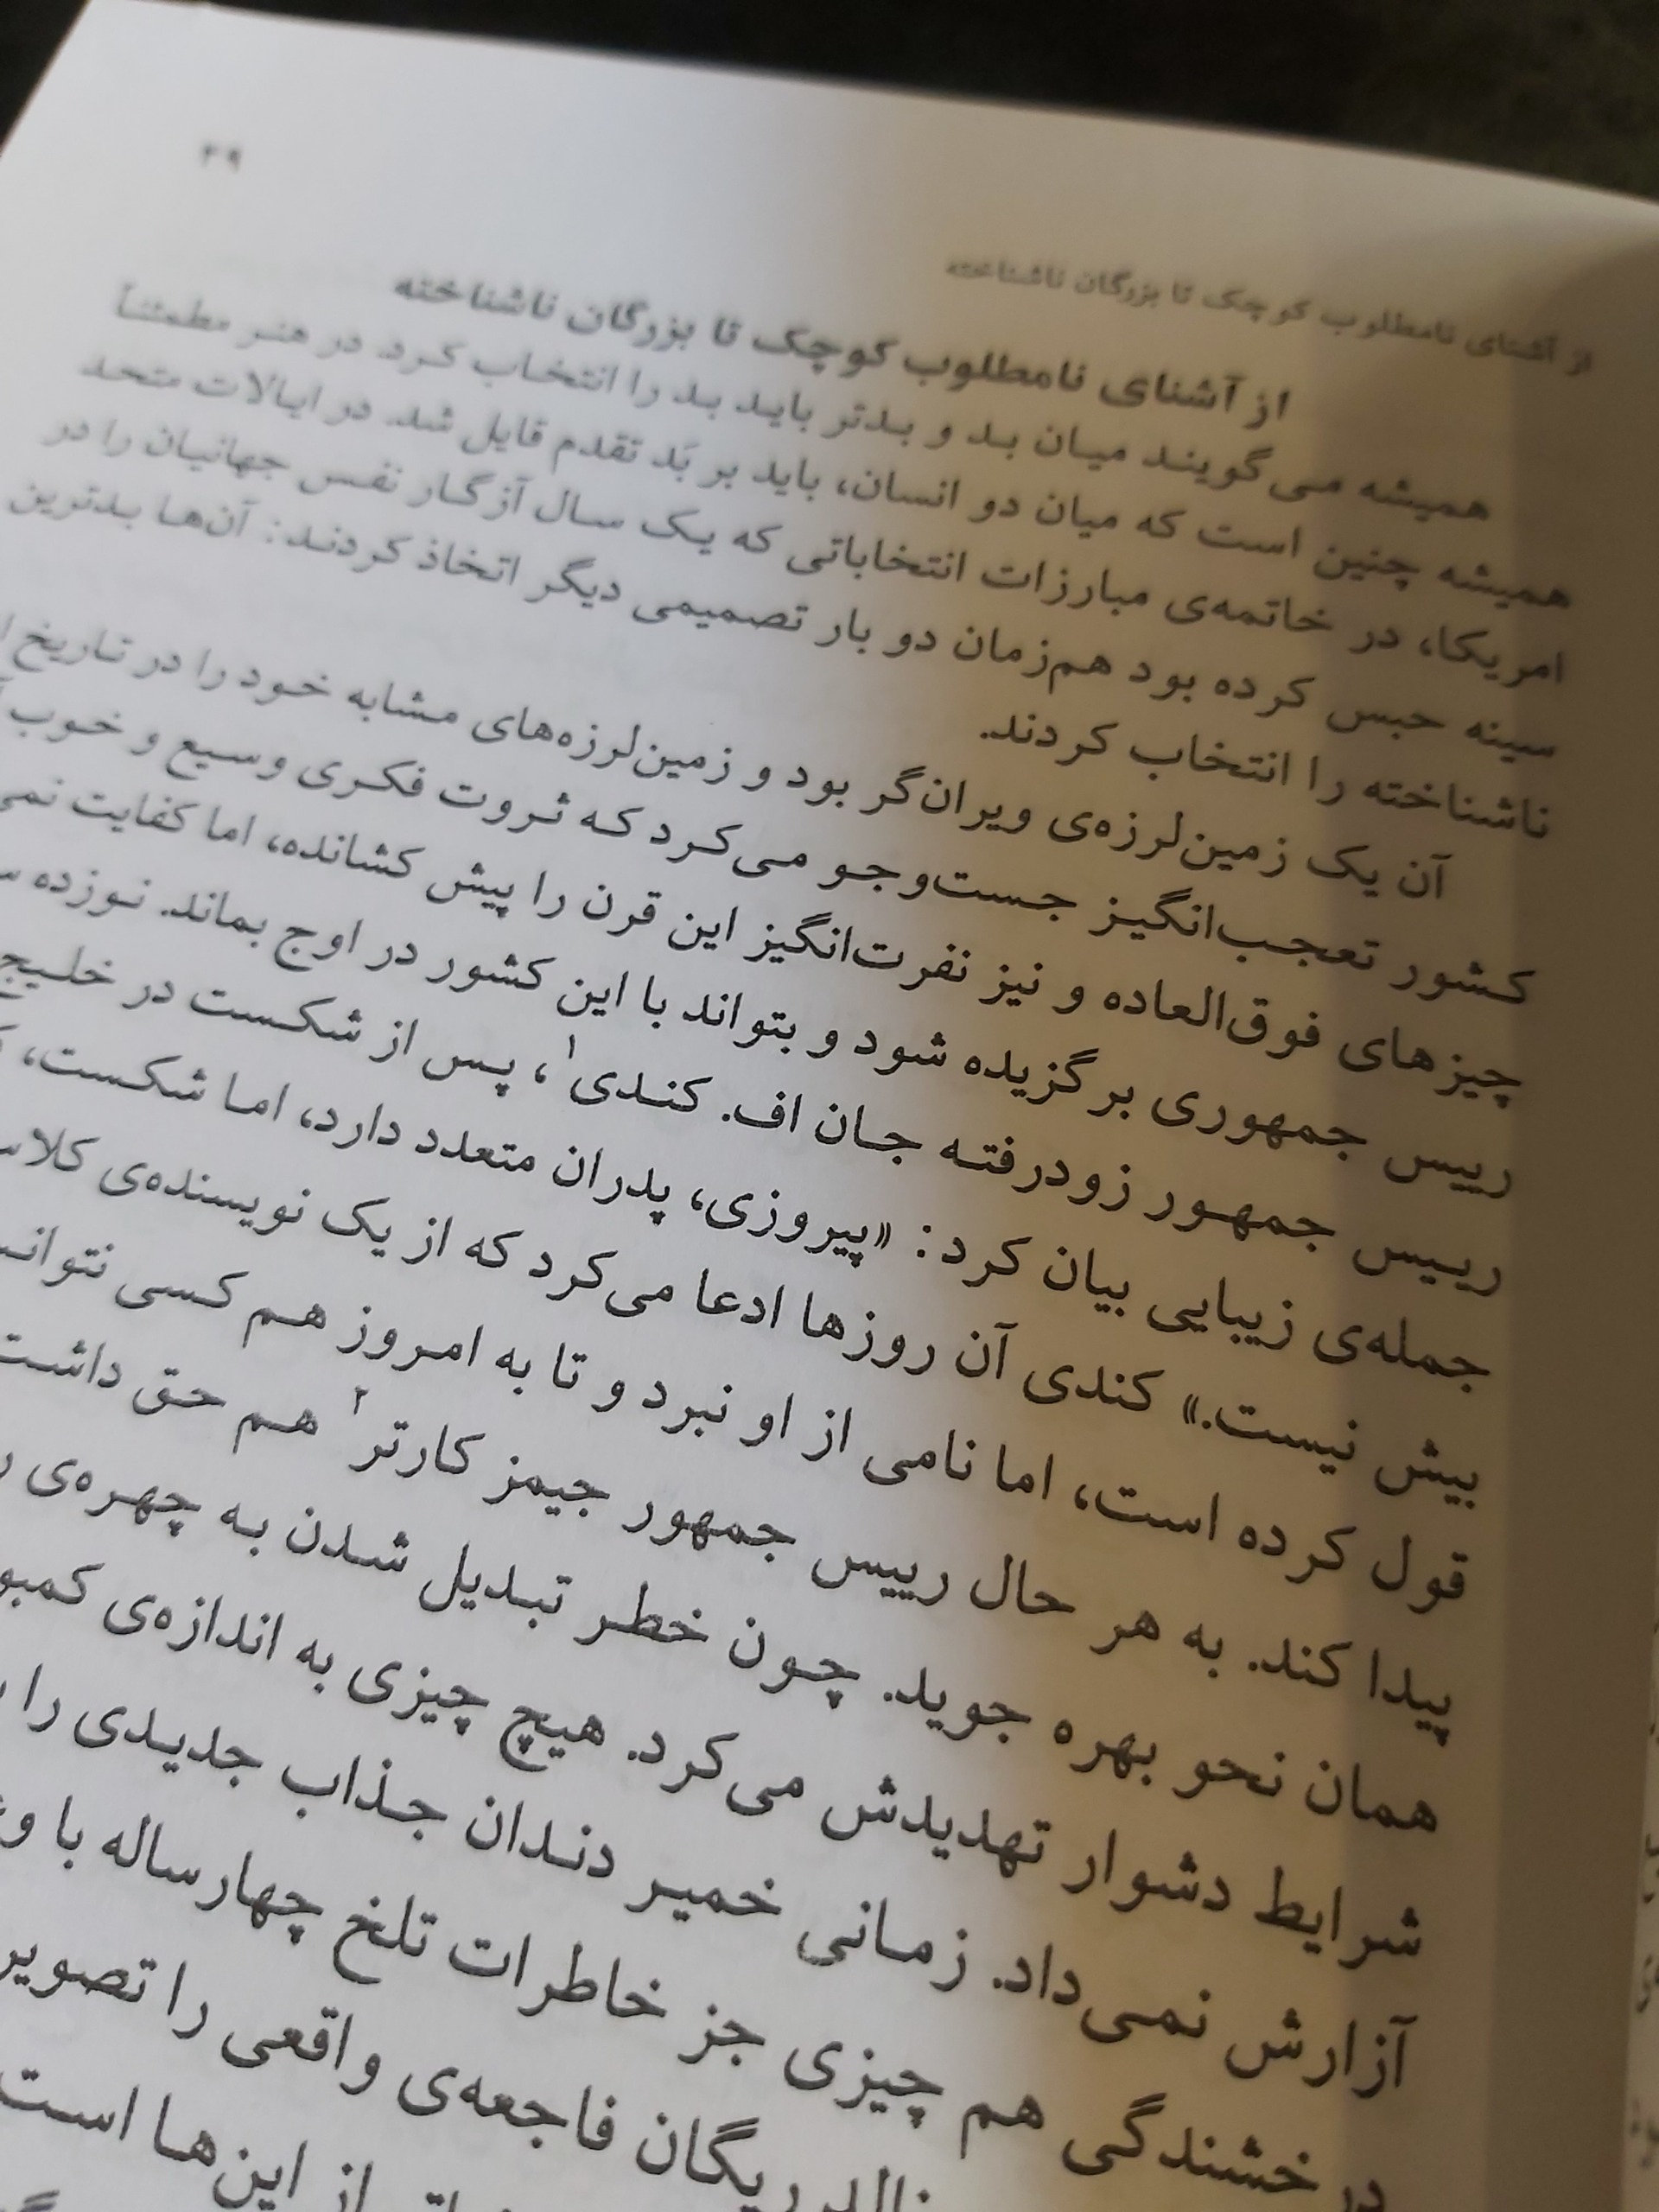 ۳۹
از آشنای نامطلوب کوچک تا بزرگان ناشناخته
از آشنای نامطلوب کوچک تا بزرگان ناشناخته
همیشه می‌گویند میان بد و بدتر باید بد را انتخاب کرد. در هنر مطمئناً
همیشه چنین است که میان دو انسان، باید بر بَد تقدم قایل شد. در ایالات متحد
امریکا، در خاتمه‌ی مبارزات انتخاباتی که یک سال آزگار نفس جهانیان را در
سینه حبس کرده بود هم‌زمان دو بار تصمیمی دیگر اتخاذ کردند: آن‌ها بدترین
ناشناخته را انتخاب کردند.
آن یک زمین‌لرزه‌ی ویران‌گر بود و زمین‌لرزه‌های مشابه خود را در تاریخ
کشور تعجب‌انگیز جست‌وجو می‌کرد که ثروت فکری وسیع و خوب
چیزهای فوق‌العاده و نیز نفرت‌انگیز این قرن را پیش کشانده، اما کفایت
رییس جمهوری برگزیده شود و بتواند با این کشور در اوج بماند. نوزده
رییس جمهور زودرفته جان اف. کندی۱، پس از شکست در خلیج
جمله‌ی زیبایی بیان کرد: «پیروزی، پدران متعدد دارد، اما شکست،
بیش نیست.» کندی آن روزها ادعا می‌کرد که از یک نویسنده‌ی
قول کرده است، اما نامی از او نبرد و تا به امروز هم کسی
پیدا کند. به هر حال رییس جمهور جیمز کارتر۲ هم حق داشت
همان نحو بهره جوید. چون خطر تبدیل شدن به چهره‌ی
شرایط دشوار تهدیدش می‌کرد. هیچ چیزی به اندازه‌ی
آزارش نمی‌داد. زمانی خمیر دندان جذاب جدیدی را
درخشندگی هم چیزی جز خاطرات تلخ چهارساله با
ریگان فاجعه‌ی واقعی را تصویر
از این‌ها است